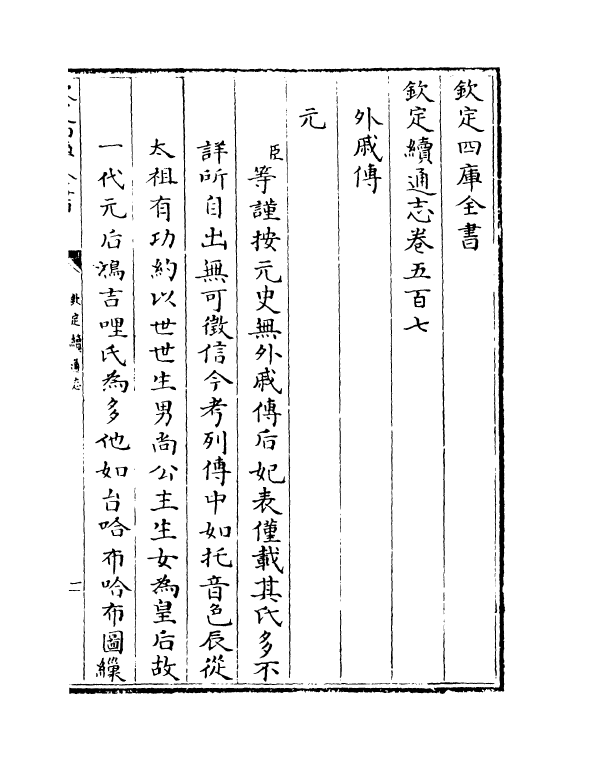 欽定四庫全書
欽定續通志卷五百七
外戚傳
元
臣等謹按元史無外戚傳后妃表僅載其氏多不
詳所自出無可徵信今考列傳中如托音色辰從
太祖有功約以世世生男尚公主生女為皇后故
一代元后鴻吉哩氏為多他如台哈布哈布圖繅
欽定續通志